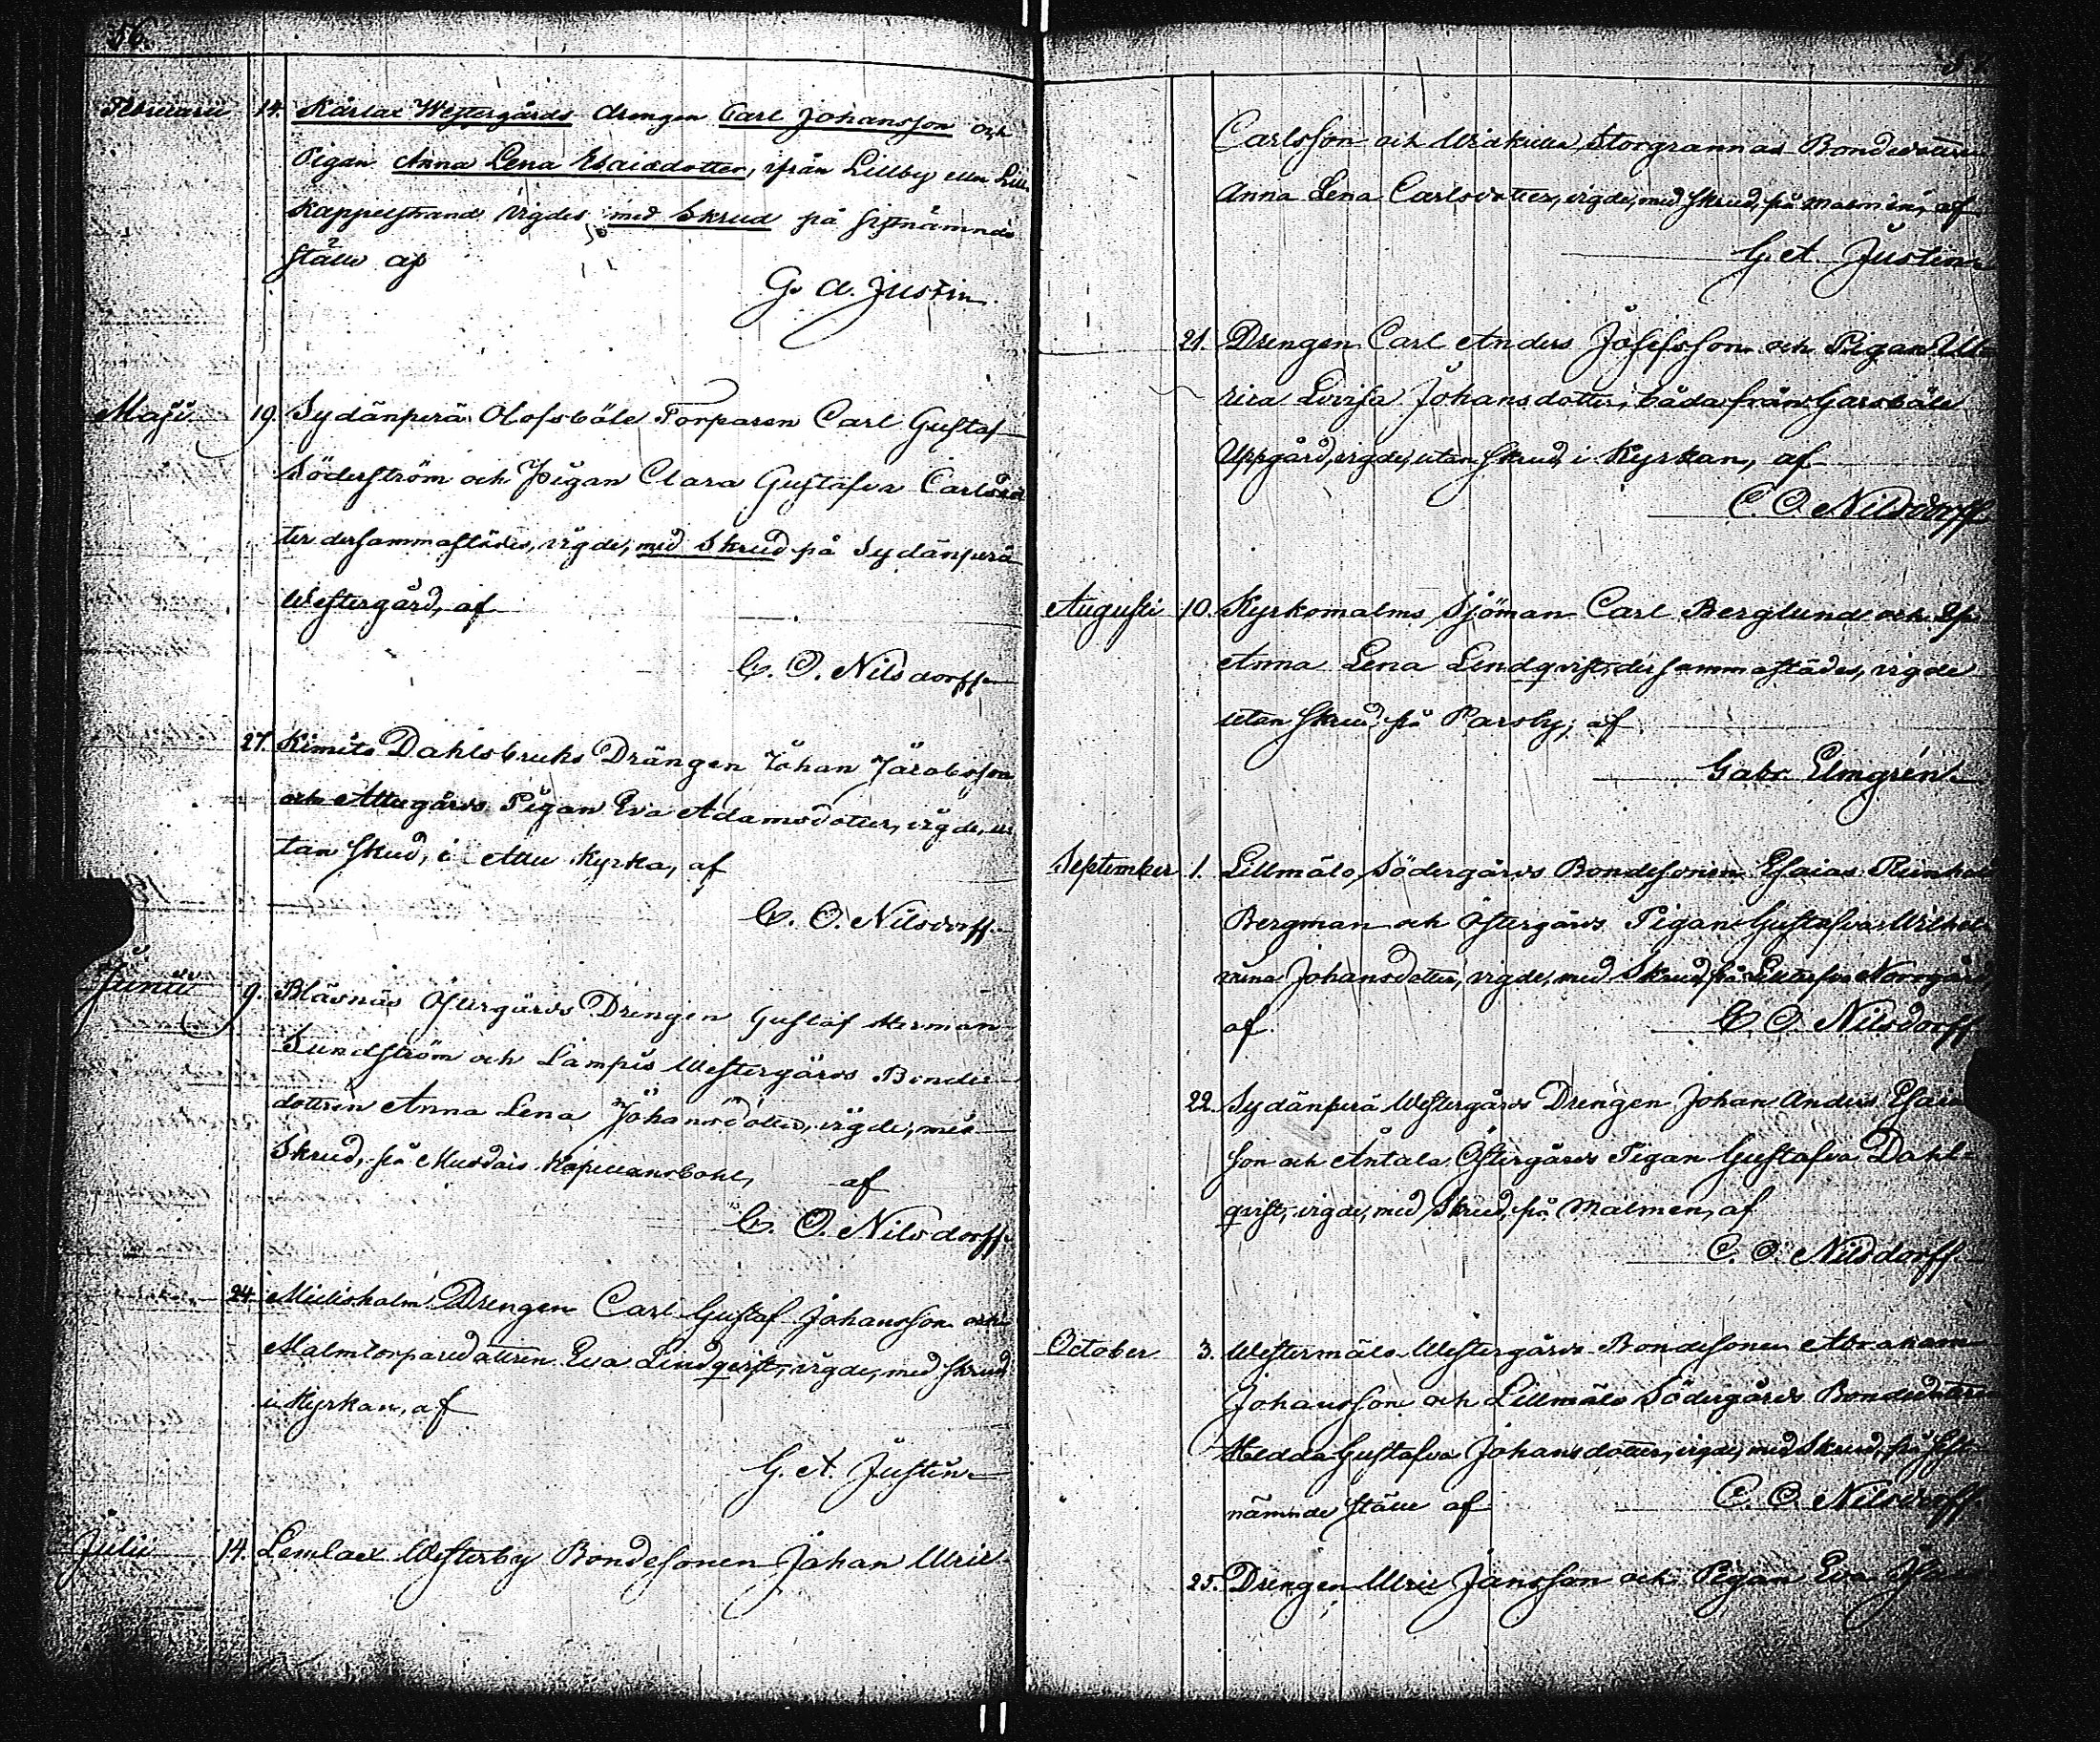 56.
Februarii 14. Kårlax Westergårds drengen Carl Johansson och
Pigan Anna Lena Esaiadotter, ifrån Lillby eller Lill
kappelstrand vigdes med Skrud på sistnämnde
ställe af
G. A. Justin.
Maji 19. Sydänperä Olofsböle Torparen Carl Gustaf
Söderström och Pigan Clara Gustafva Carlsdot
ter dersammastädes, vigde, med Skrud på Sydänperä
Westergård, af
C. O. Nilsdorff
27. Kimito Dahlsbruks Drängen Johan Jacobsson
och Attugårds Pigan Eva Adamsdotter, vigde, u
tan skrud, i Attu Kyrka, af
C. O. Nilsdorff
Junii 9. Bläsnäs Östergårds Drengen Gustaf Herman
Sundström och Lampis Westergårds Bonde
dottren Anna Lena Johansdotter, vigde, med
Skrud, på Mustais Kapellansbohl, af
C. O. Nilsdorff
24. Mielisholm Drengen Carl Gustaf Johansson och
Malmtorparedottren Eva Lindqvist, vigde, med skrud
i Kyrkan, af
G. A. Justin
Julii 14. Lemlax Westerby Bondesonen Johan Ulric
Carlsson och Storgrannas Bondedottren
Anna Lena Carlsdotter, vigde, med skrud, på Malmen, af
G. A. Justin
21. Drengen Carl Anders Josefsson och Pigan Ul
rica Lovisa Johansdotter, båda från Garsböle
Uppgård, vigde, utan skrud, i Kyrkan, af
C. O. Nilsdorff
Augusti 10. Kyrkomalms Sjöman Carl Berglund och
Anna Lena Lindqvist, dersammastädes, vigde
utan skrud på Parsby, af
Gabr. Elmgrén
September 1. Lillmälo Södergårds Bondesonen Esaias Reinhold
Bergman och Östergårds Pigan Gustafva Wilhel
mina Johansdotter, vigde, med Skrud, på Norrgård,
af C. O. Nilsdorff
22. Sydänperä Westergårds Drengen Johan Anders Esaias
son och Antala Östergårds Pigan Gustafva Dahl
qvist, vigde, med Skrud, på Malmen, af
C. O. Nilsdorff
October 3. Westermälo Westergårds Bondesonen Abraham
Johansson och Lillmälo Södergårds Bondedottren
Hedda Gustafva Johansdotter, vigde, med Skrud, på sist
nämnde ställe af C. O. Nilsdorff
25. Drengen Ulric Jansson och Pigan Eva